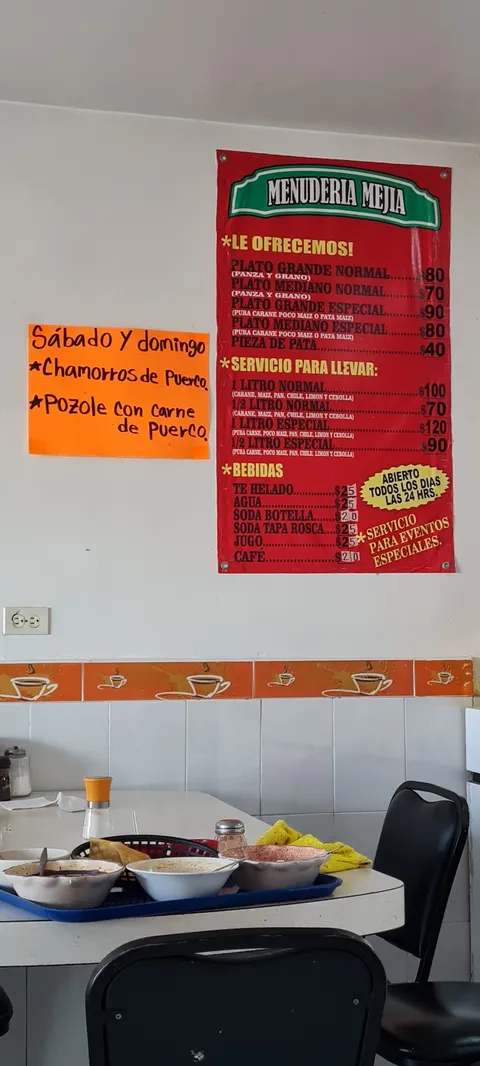 MENUDERIA MEJIA
*LE OFRECEMOS!
PLATO GRANDE NORMAL......$80
(PANZA Y GRANO)
PLATO MEDIANO NORMAL.....$70
(PANZA Y GRANO)
PLATO GRANDE ESPECIAL....$90
(PURA CARANE POCO MAIZ O PATA MAIZ)
PLATO MEDIANO ESPECIAL...$80
(PURA CARANE POCO MAIZ O PATA MAIZ)
PIEZA DE PATA............$40
*SERVICIO PARA LLEVAR:
1 LITRO NORMAL...........$100
(CARANE, MAIZ, PAN, CHILE, LIMON Y CEBOLLA)
1/2 LITRO NORMAL.........$70
(CARANE, MAIZ, PAN, CHILE, LIMON Y CEBOLLA)
1 LITRO ESPECIAL.........$120
(PURA CARNE, POCO MAIZ, PAN, CHILE, LIMON Y CEBOLLA)
1/2 LITRO ESPECIAL.......$90
(PURA CARNE, POCO MAIZ, PAN, CHILE, LIMON Y CEBOLLA)
*BEBIDAS
TE HELADO..........$25
AGUA...............$25
SODA BOTELLA.......$20
SODA TAPA ROSCA....$25
JUGO...............$25
CAFÉ...............$20
ABIERTO
TODOS LOS DIAS
LAS 24 HRS.
*SERVICIO
PARA EVENTOS
ESPECIALES.
Sábado Y domingo
*Chamorros de Puerco.
*Pozole con carne
de Puerco.